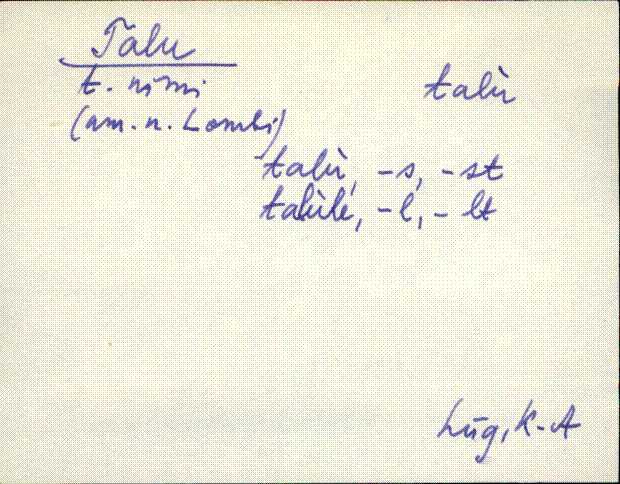 Talu
t. nimi
talù
(am. n. Lombi)
talù, -s, -st
talùle, -l, -lt
Lüg, K-A